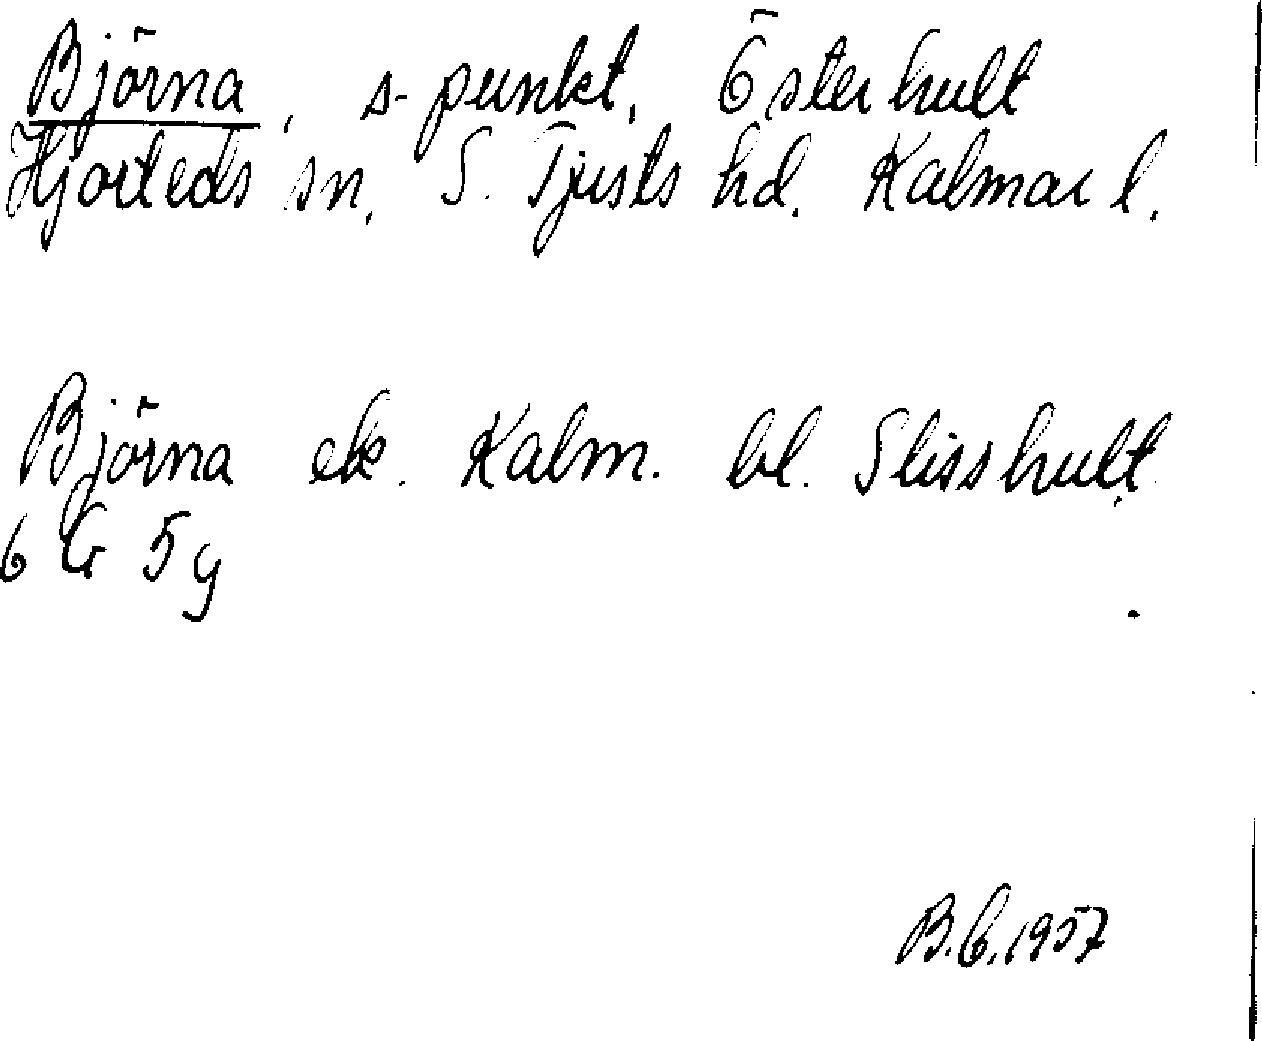 Björna, s-punkt, Österhult
Hjorteds sn, S. Tjusts hd. Kalmar l.
Björna ek. Kalm. bl. Slisshult.
6 G 5 g
B.C. 1957